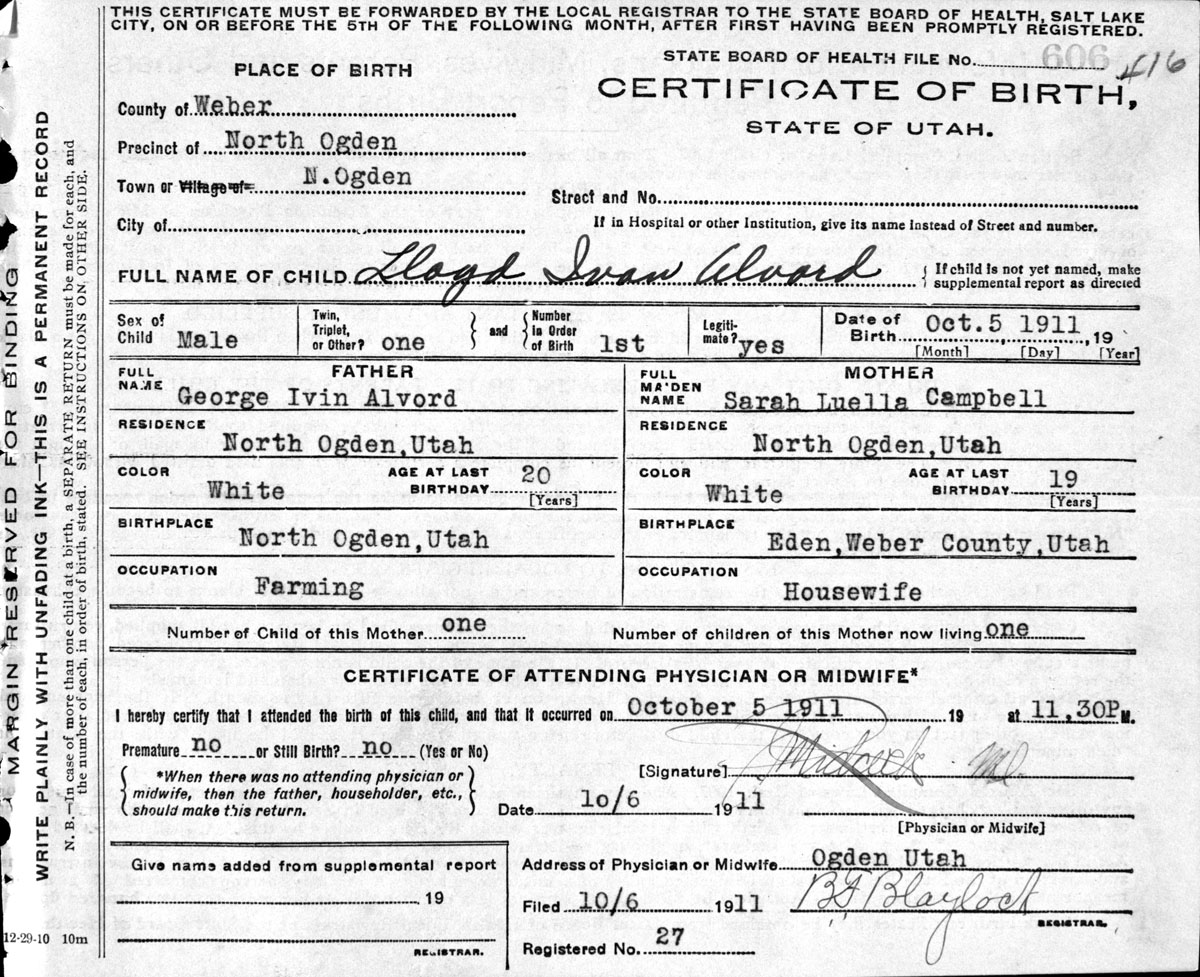 THIS CERTIFICATE MUST BE FORWARDED BY THE LOCAL REGISTRAR TO THE STATE BOARD OF HEALTH, SALT LAKE
CITY, ON OR BEFORE THE 5TH OF THE FOLLOWING MONTH, AFTER FIRST HAVING BEEN PROMPTLY REGISTERED.
STATE BOARD OF HEALTH FILE No. 416
PLACE OF BIRTH
CERTIFICATE OF BIRTH,
STATE OF UTAH.
County of Weber
Precinct of North Ogden
Town or Village of N.Ogden
Street and No.
City of
If in Hospital or other Institution, give its name instead of Street and number.
FULL NAME OF CHILD Lloyd Ivan Alvord
{ If child is not yet named, make
supplemental report as directed
Sex of Child Male
Twin, Triplet, or Other? one } and { Number in Order of Birth 1st
Legiti-mate? yes
Date of Birth Oct.5 1911, 19
[Month] [Day] [Year]
FATHER
FULL NAME George Ivin Alvord
RESIDENCE North Ogden,Utah
COLOR White AGE AT LAST BIRTHDAY 20 [Years]
BIRTHPLACE North Ogden,Utah
OCCUPATION Farming
MOTHER
FULL MA'DEN NAME Sarah Luella Campbell
RESIDENCE North Ogden,Utah
COLOR White AGE AT LAST BIRTHDAY 19 [Years]
BIRTHPLACE Eden,Weber County,Utah
OCCUPATION Housewife
Number of Child of this Mother one Number of children of this Mother now living one
CERTIFICATE OF ATTENDING PHYSICIAN OR MIDWIFE*
I hereby certify that I attended the birth of this child, and that it occurred on October 5 1911 19 at 11,30P M.
Premature no or Still Birth? no (Yes or No)
{ *When there was no attending physician or
midwife, then the father, householder, etc.,
should make this return. }
[Signature]
Date 10/6 1911
[Physician or Midwife]
Give name added from supplemental report
19
REGISTRAR.
Address of Physician or Midwife Ogden Utah
Filed 10/6 1911 B F Blaylock
REGISTRAR.
Registered No. 27
MARGIN RESERVED FOR BINDING
WRITE PLAINLY WITH UNFADING INK—THIS IS A PERMANENT RECORD
N. B.—In case of more than one child at a birth, a SEPARATE RETURN must be made for each, and
the number of each, in order of birth, stated. SEE INSTRUCTIONS ON OTHER SIDE.
12-29-10 10m